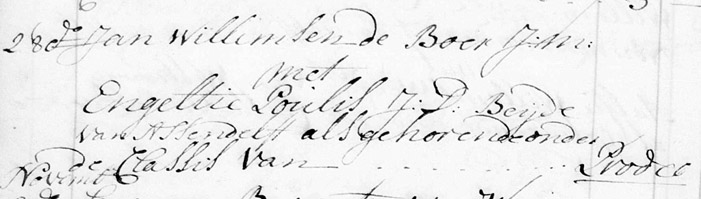 28de Jan Willimsen de Boer J: M:
met
Engeltie Poulis J: D: Beijde
van Assendelft als gehorende onder
de Classis van . . . . . . Prodeo
Novemb